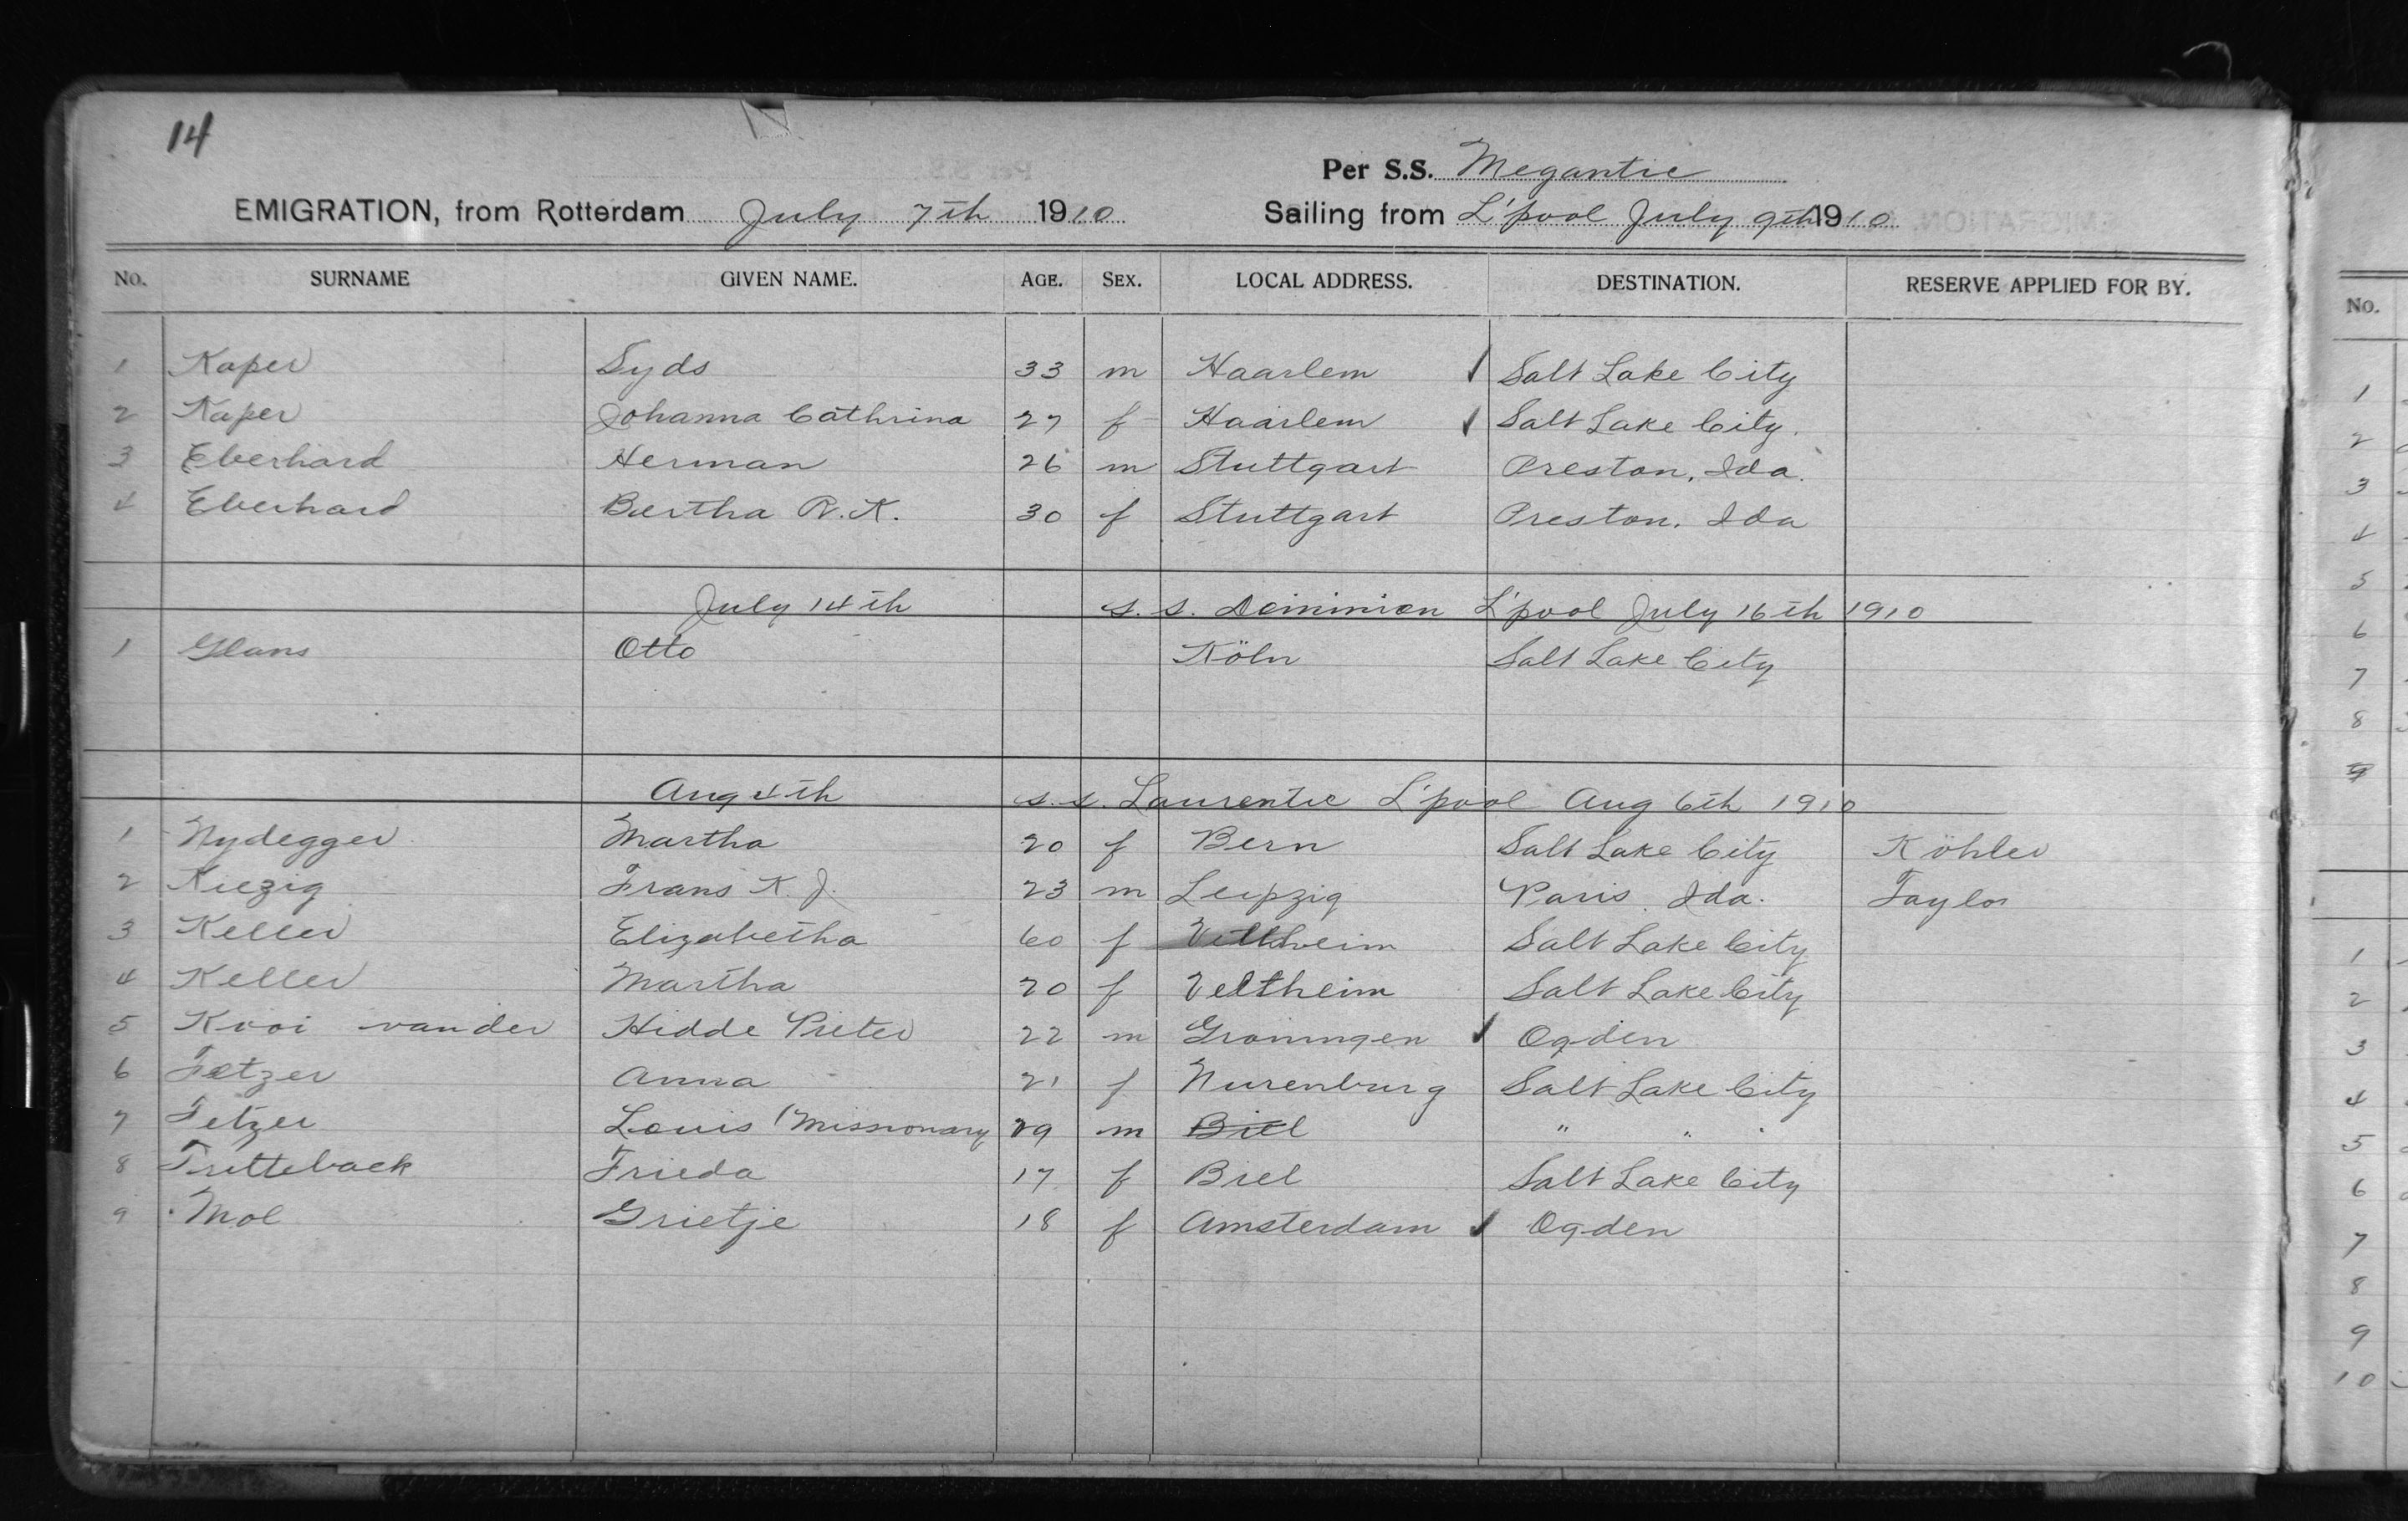 14
Per S.S. Megantic
EMIGRATION, from Rotterdam July 7th 1910 Sailing from L'pool July 9th 1910
No. SURNAME GIVEN NAME. AGE. SEX. LOCAL ADDRESS. DESTINATION. RESERVE APPLIED FOR BY.
1 Kaper Syds 33 m Haarlem ✓ Salt Lake City
2 Kaper Johanna Cathrina 27 f Haarlem ✓ Salt Lake City.
3 Eberhard Herman 26 m Stuttgart Preston, Ida.
4 Eberhard Bertha R. K. 30 f Stuttgart Preston, Ida
July 14th s.s. Dominion L'pool July 16th 1910
1 Glans Otto Köln Salt Lake City
Aug 4th s.s. Laurentic L'pool Aug 6th 1910
1 Nydegger Martha 20 f Bern Salt Lake City Köhler
2 Kiezig Frans K. J. 23 m Leipzig Paris, Ida. Taylor
3 Keller Elizabetha 60 f Veltheim Salt Lake City
4 Keller Martha 20 f Veltheim Salt Lake City
5 Kooi van der Hidde Pieter 22 m Groningen ✓ Ogden
6 Fetzer Anna 21 f Nurenburg Salt Lake City
7 Fetzer Louis (Missionary 29 m Biel " "
8 Tritteback Frieda 17 f Biel Salt Lake City
9 Mol Grietje 18 f Amsterdam ✓ Ogden
No.
1
2
3
4
5
6
7
8
9
1
2
3
4
5
6
7
8
9
10